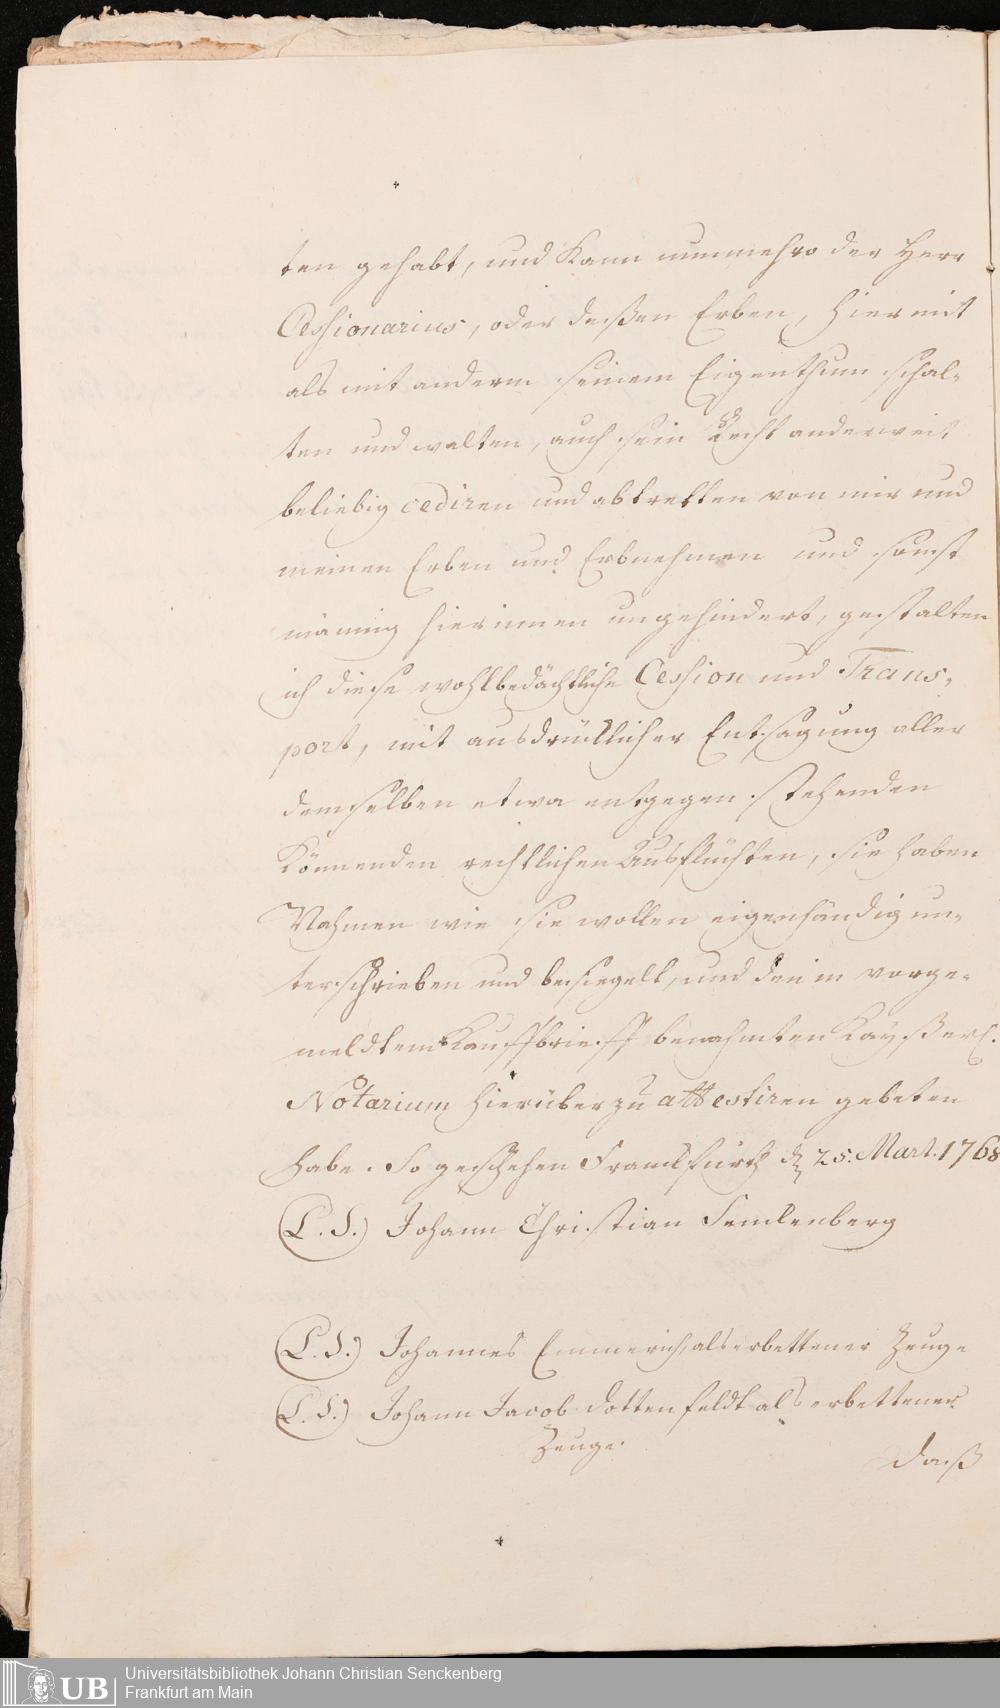 ten gehabt, und Kann nunmehro der Herr
Cessionarius, oder deßen Erben, hiermit
als mit anderm seinem Eigenthum schal-
ten und walten, auch sein Recht anderweit
beliebig cediren und abtretten von mir und
meinen Erben und Erbnehmen und sonst
männig hierinnen ungehindert, gestalten
ich diese wohlbedächtliche Cession und Trans-
port, mit ausdrücklicher Entsagung aller
demselben etwa entgegen stehenden
Könnenden rechtlichen Ausflüchten, sie haben
Nahmen wie sie wollen eigenhändig un-
terschrieben und besiegelt, und den in vorge-
meldtem Kauffbrieff benahmten Kayßerl.
Notarium hierüber zu attestiren gebeten
habe. So geschehen Franckfurth d 25. Mart. 1768
(L. S.) Johann Christian Senckenberg
(L. S.) Johannes Emmerich, als erbettener Zeuge
(L. S.) Johann Jacob Dottenfeldt als erbettener
Zeuge.
Daß
Universitätsbibliothek Johann Christian Senckenberg
Frankfurt am Main
UB